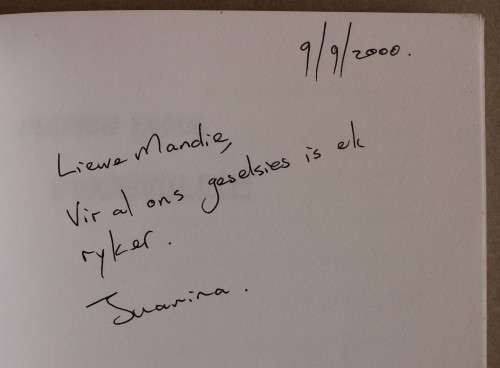 9/9/2000.
Liewe Mandie,
Vir al ons geselsies is ek
ryker.
Juanina.